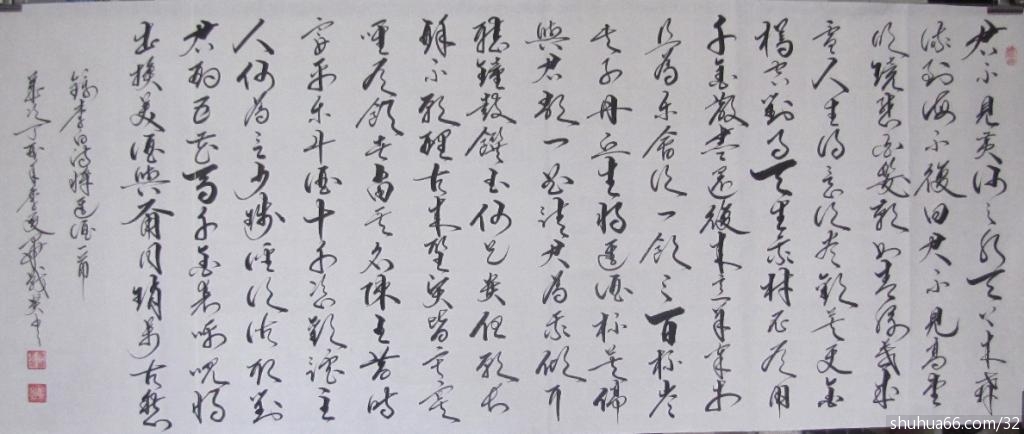 君不見黃河之水天上來奔
流到海不復回君不見高堂
明鏡悲白髮朝如青絲暮成
雪人生得意須盡歡莫使金
樽空對月天生我材必有用
千金散盡還復來烹羊宰牛
且為樂會須一飲三百杯岑
夫子丹丘生將進酒杯莫停
與君歌一曲請君為我傾耳
聽鐘鼓饌玉何足貴但願長
醉不願醒古來聖賢皆寂寞
唯有飲者留其名陳王昔時
宴平樂斗酒十千恣歡謔主
人何為言少錢徑須沽取對
君酌五花馬千金裘呼兒將
出換美酒與爾同銷萬古愁
錄李白詩將進酒一首
丁亥年
shuhua66.com/32